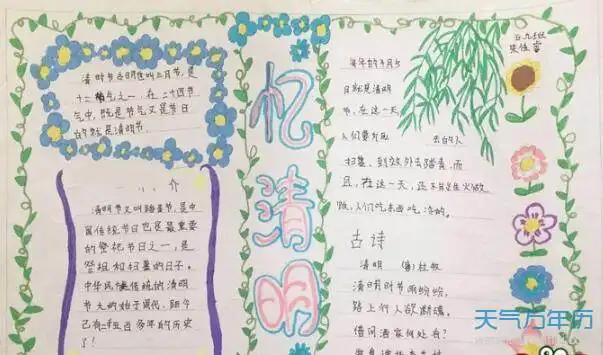 清明节在农历也叫三月节,是
十二节气之一,在二十四节
气中,既是节气又是节日
的就是清明节。
小介
清明节又叫踏青节,是中
国传统节日也是最重要
的祭祀节日之一,是
祭祖和扫墓的日子。
中华民族传统的清明
节大约始于周代,距今
已有二千五百多年的历史
了!
忆清明
每年的4月5
日就是清明
节,在这一天,
人们要为死去的人
扫墓,到郊外去踏青,而
且,在这一天,还不能生火做
饭,人们吃东西吃冷的。
古诗
清明 (唐)杜牧
清明时节雨纷纷,
路上行人欲断魂。
借问酒家何处有?
天气万年历